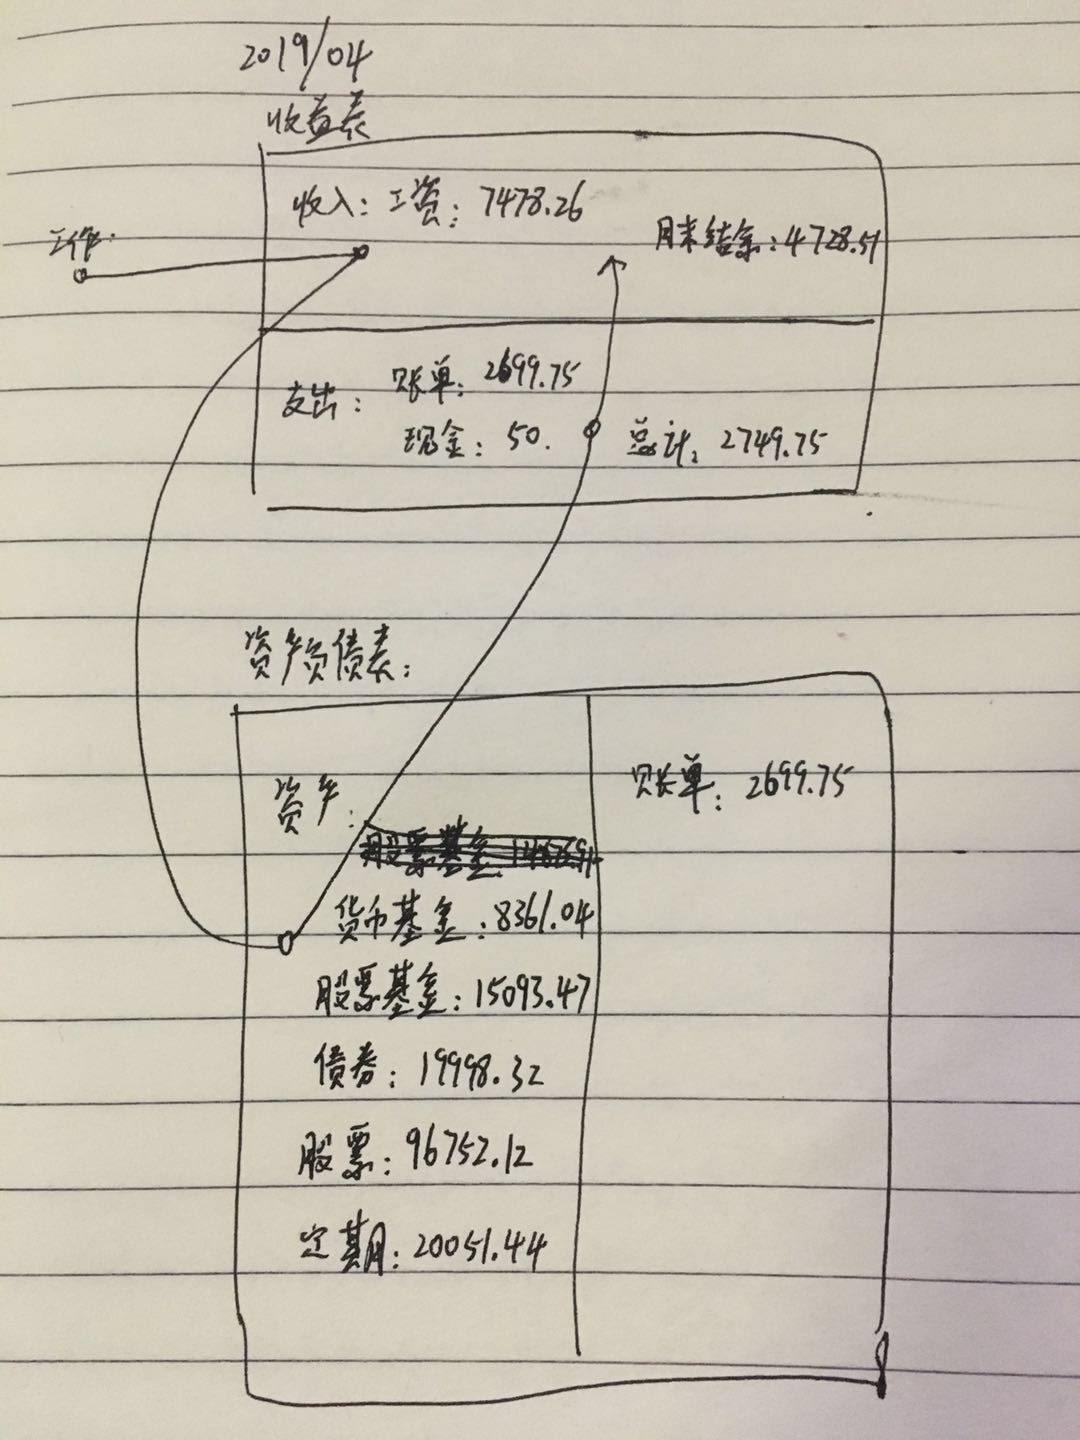 2019/04
收益表
收入：工资：7478.26
月末结余：4728.51
工作：
支出：
账单：2699.75
现金：50.
总计：2749.75
资产负债表：
资产：
账单：2699.75
货币基金：8361.04
股票基金：15093.47
债券：19998.32
股票：96752.12
定期：20051.44